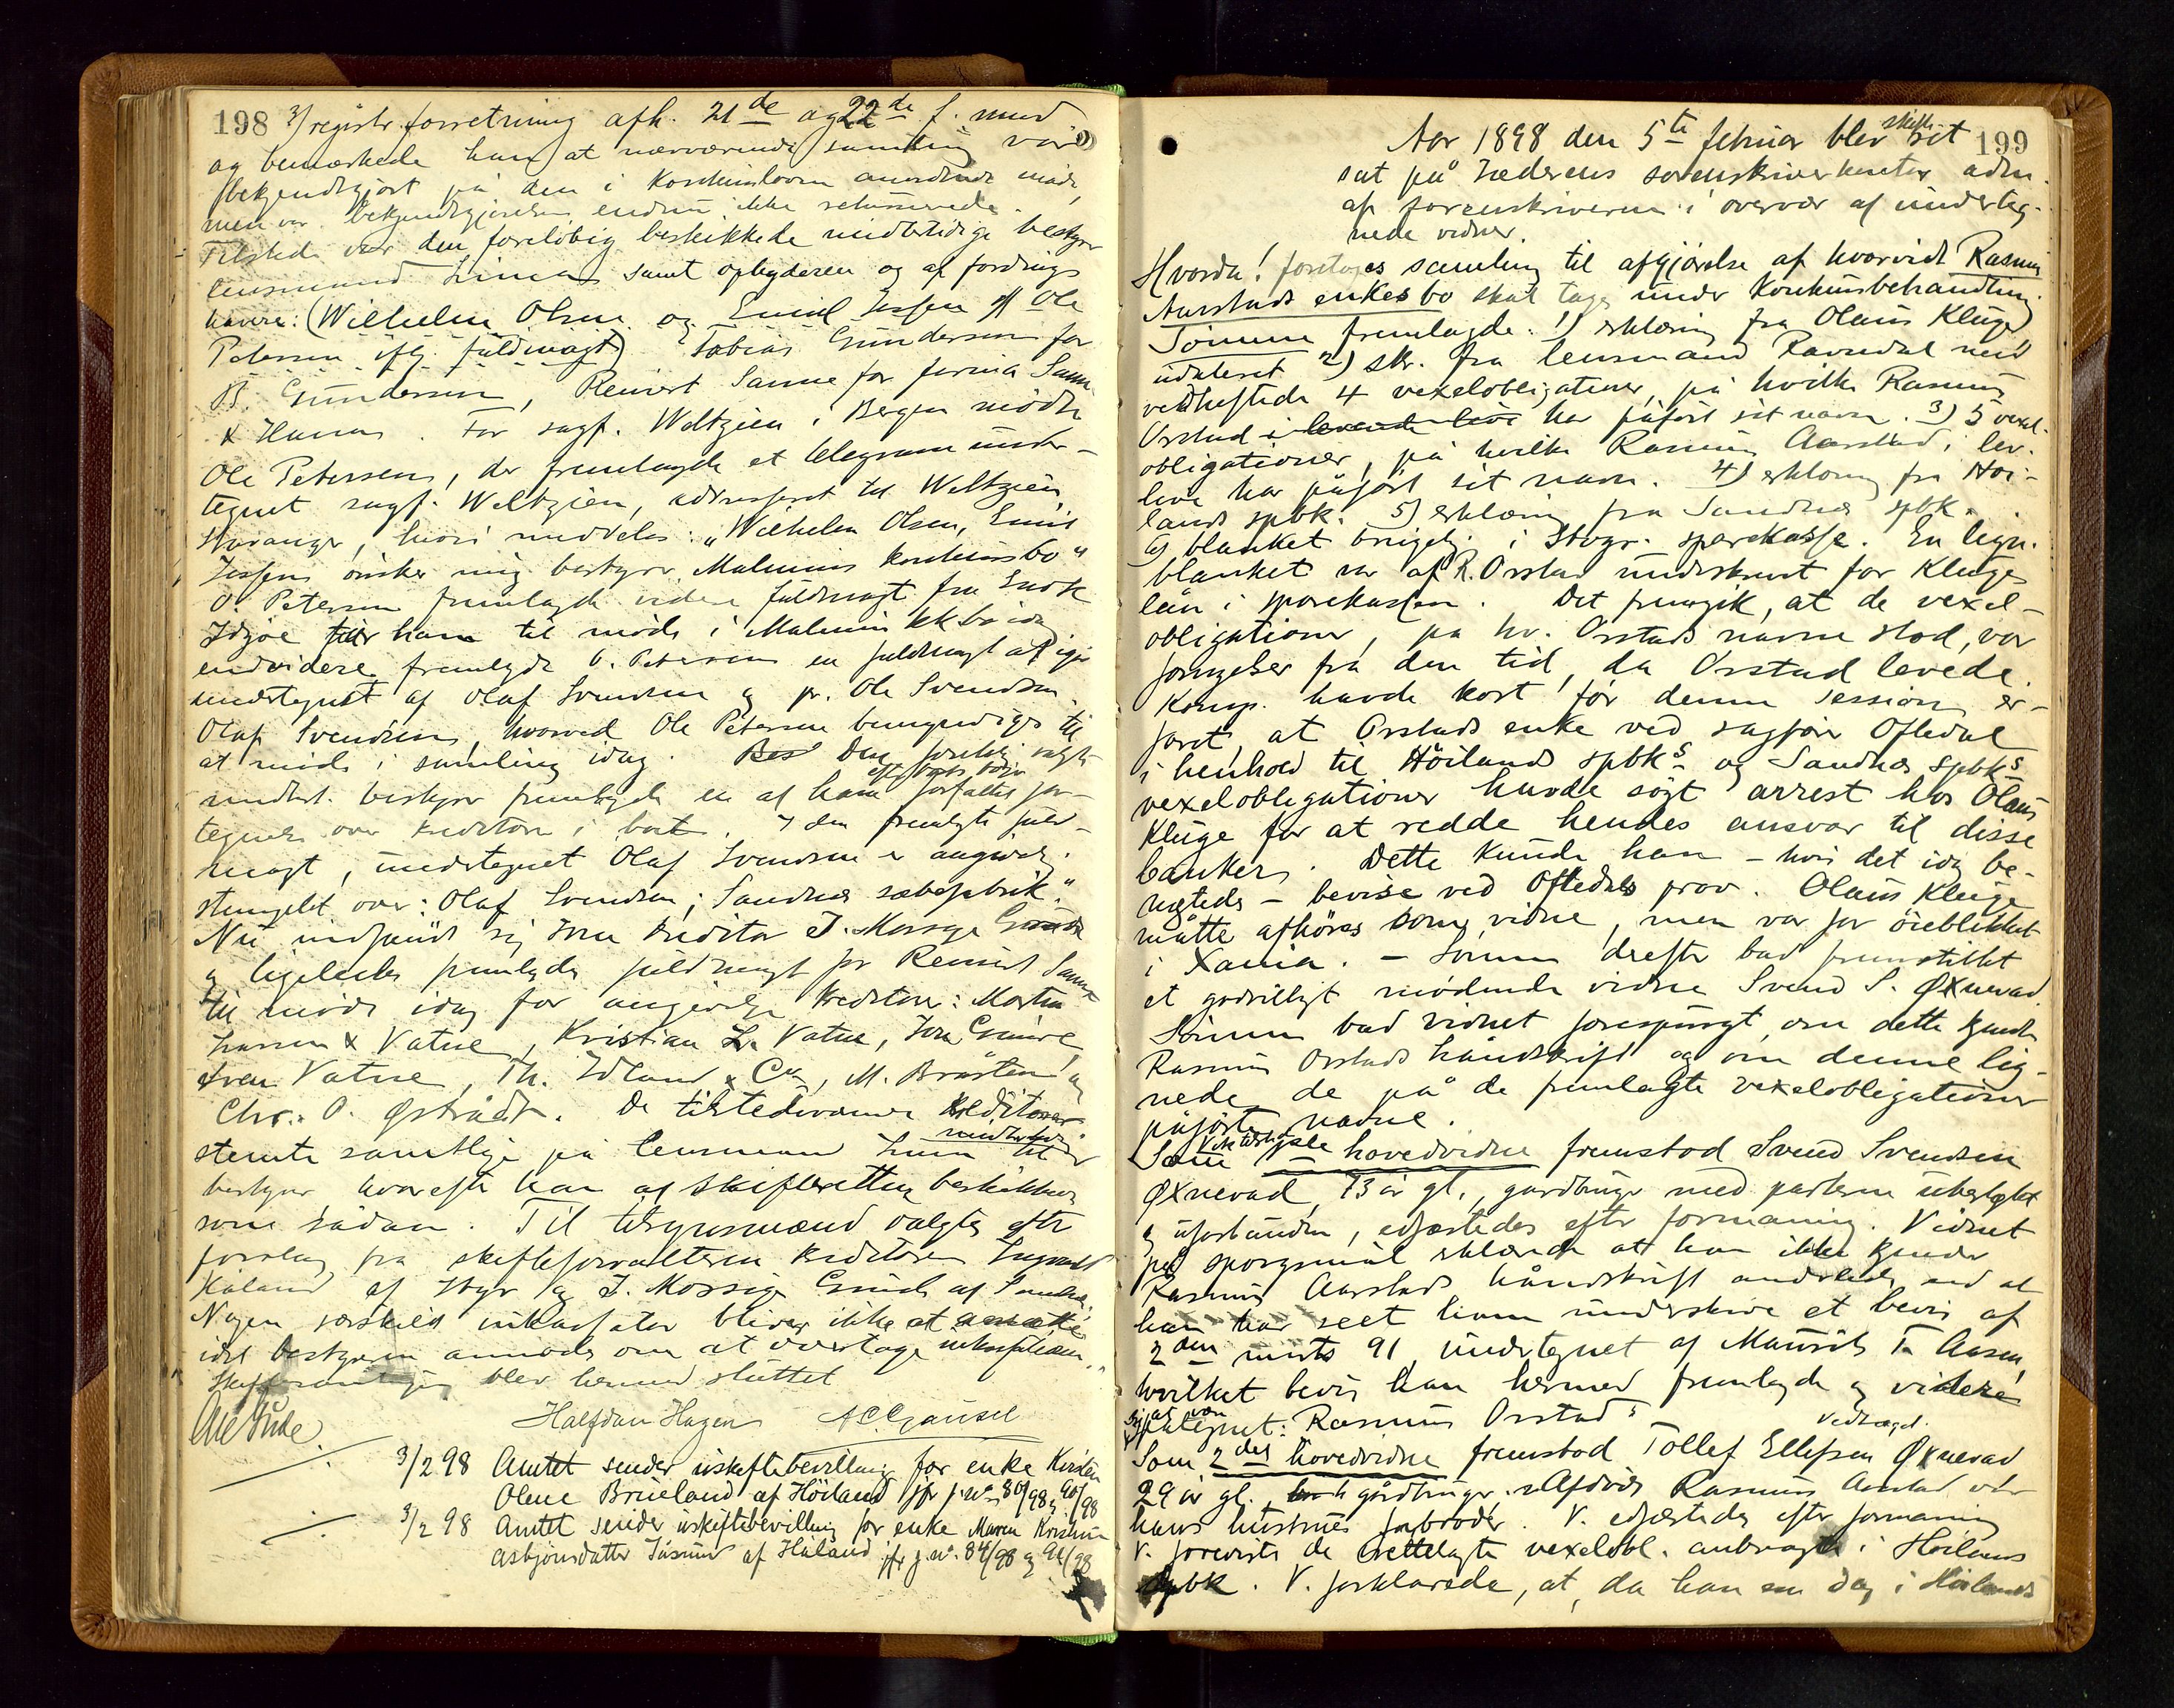 198 3/ registr.forretning afh. 21de og 22de f. med
og bemærkede han at nærværende samling var
bekjendtgjort på den i Konkursloven anordnede måde,
men var bekjendtgjørelsen endnu ikke returnerede.
Tilstede var den foreløbig beskikkede midlertidige bestyrer
lensmand Lima samt opbyderen og af fordrings
havere: (Wilhelm Olsen og Emil Jessen v/ Ole
Petersen iflg. fuldmagt) Tobias Gundersen for
B. Gundersen, Reinert Sanne for firma Sanne
& Hanna. For sagf. Weltzien i Bergen mødte
Ole Petersen, der fremlagde et telegram under-
tegnet sagf. Weltzien, adresseret til Weltzien
Stavanger, hvori meddeles: "Wilhelm Olsen, Emil
Jessen ønsker mig bestyrer Malmins konkursbo"
O. Petersen fremlagde videre fuldmagt fra
for ham til møde i Malmins kkbo idag
endvidere fremlagde O. Petersen en fuldmagt
undertegnet af Olaf Svendsen og pr. Ole Svendsen
Olaf Svendsen, hvorved Ole Petersen bemyndiges til
at møde i samling idag. Den foreløbig valgte
midlert. bestyrer fremlagde en af ham forfattet for-
tegnelse over kreditorer i boet. I den fremlagte fuld-
magt, undertegnet Olaf Svendsen er angivelig
stemplet over: "Olaf Svendsen; Sandnes sæbefabrik."
Nu indfandt sig som kreditor J. Mossige Grude
og ligeledes fremlagdes fuldmagt for Reinert Sanne
til møde idag for angivelige kreditorer: Martin
Larsen & Vatne, Kristian L. Vatne, Jon Grude,
Sven Vatne, Th. Idland & Co, M. Bråsten og
Chr. O. Østrådt. De tilstedeværende kreditorer
stemte samtlige på lensmand Lima til midlertidig
bestyrer hvorefter han af skifteretten beskikkes
som sådan. Til tilsynsmænd valgtes efter
forslag fra skifteforvalteren kreditorer
Håland af Stvgr og J. Mossige Grude af Sandnes.
Nogen særskilt inkassator bliver ikke at ansætte
idet bestyreren anmodes om at overtage inkassationen.
Skiftesamlingen blev hermed sluttet
Halfdan Hagen A C Gausel
3/2 98 Amtet sender uskiftebevilling for enke Kirsten
Oline Brueland af Höiland jfr j.no 80/98 og 90/98
3/2 98 Amtet sender uskiftebevilling for enke Maren Kristine
Asbjørnsdatter af Håland jfr j.no. 84/98 og 91/98
199
Aar 1898 den 5te februar blev skifteret
sat på Jæderens sorenskriverkontor adm.
af sorenskriveren i overvær af underteg-
nede vidner.
Hvorda! foretoges samling til afgjørelse af hvorvidt Rasmus
Aarstads enkes bo skal tages under Konkursbehandling.
Sømme fremlagde: 1) erklæring fra Olaus Kluge
udateret 2) skr. fra lensmand Ravndal med
vedheftede 4 vexelobligationer, på hvilke Rasmus
Orstad i levende live har påført sit navn. 3) 5 vexel-
obligationer, på hvilke Rasmus Aarstad i lev.
live har påført sit navn. 4) erklæring fra Höi-
lands spbk. 5) erklæring fra Sandnes spbk.
6) blanket brugelig i Stvgr. sparekasse. En lign.
blanket var af R. Orstad underskrevet for Kluges
lån i sparekassen. Det fremgik, at de vexel-
obligationer, på hv. Orstads navne stod, var
fornyelser fra den tid, da Orstad levede.
Komp. havde kort før denne session er-
faret, at Orstads enke ved sagfører Oftedal
i henhold til Höilands spbks og Sandnes spbks
vexelobligationer havde søgt arrest hos Olaus
Kluge for at redde hendes ansvar til disse
banker. Dette kunde han – hvis det idag be-
nægtedes – bevise ved Oftedals prov. Olaus Kluge
måtte afhøres som vidne, men var for öieblikket
i Xania. – Sömme derefter bad fremstillet
et godvilligt mødende vidne Svend S. Øxnevad.
Sömme bad vidnet forespurgt, om dette kjendte
Rasmus Orstads håndskrift og om denne lig-
nede de på de fremlagte vexelobligationer
påførte navne.
Som 1ste hovedvidne fremstod Svend Svendsen
Øxnevad, 73 år gl., gardbruger med parterne ubeslægtet
og uforbunden, edfæstedes efter formaning. Vidnet
på spørgsmål erklærede at han ikke kjender
Rasmus Aarstads håndskrift anderledes end at
han har seet ham underskrive et bevis af
2den marts 91 undertegnet af Mauritz T. Aasen,
hvilket bevis han hermed fremlagde og videre
påtegnet: Rasmus Orstad
Som 2det hovedvidne fremstod Tollef Ellefsen Øxnevad
29 år gl., gårdbruger. Afdöde Rasmus Aarstad var
hans hustrues farbroder. V. edfæstedes efter formaning
V. forevistes de fremlagte vexelobl. anbragte i Höilands
spbk. V. forklarede, at, da han en dag i Höilands